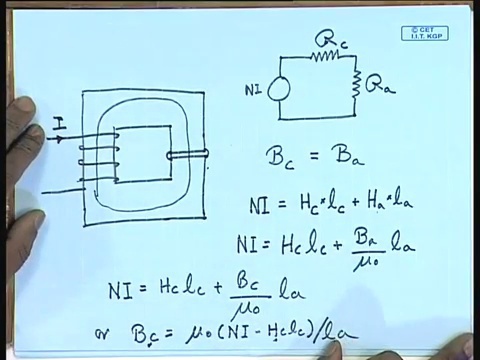 © CET
I.I.T. KGP
I
NI
R_c
R_a
B_c = B_a
NI = H_c * l_c + H_a * l_a
NI = H_c l_c + B_a/μ_0 l_a
NI = H_c l_c + B_c/μ_0 l_a
or B_c = μ_0 (NI - H_c l_c)/l_a